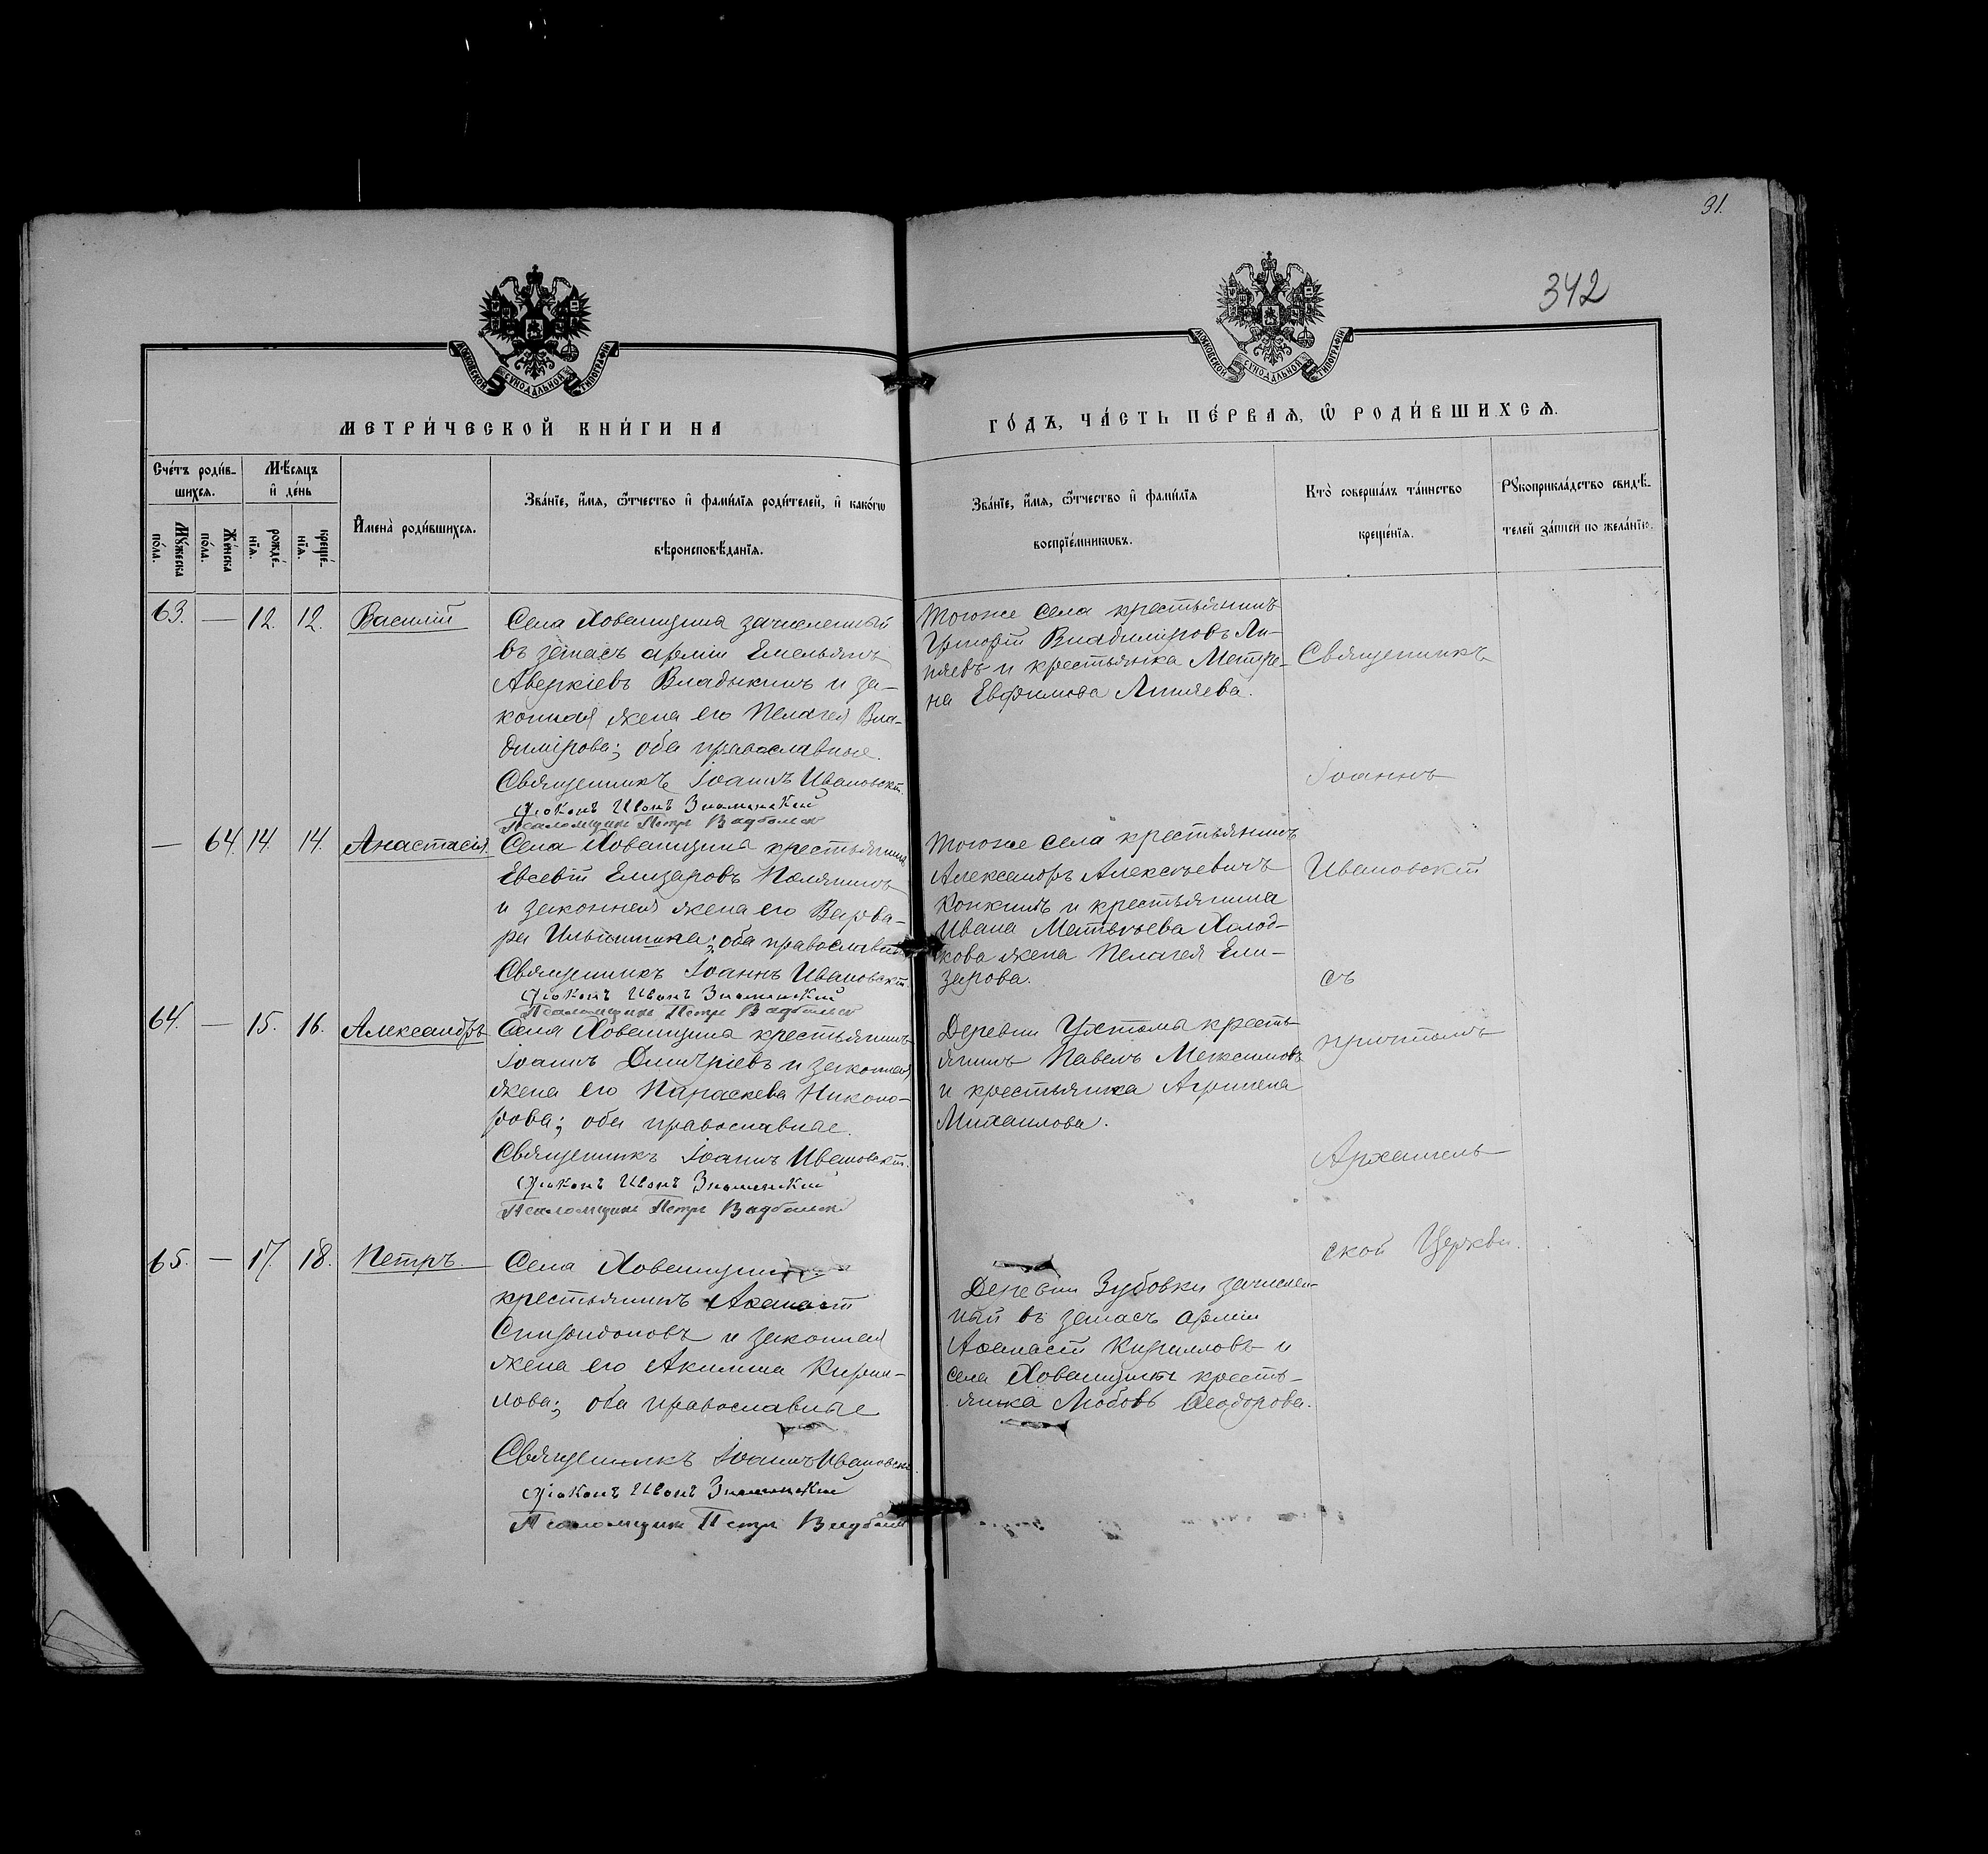 31.
342
МОСКОВСКОЙ СѴНОДАЛЬНОЙ ТИПОГРАФІИ
МОСКОВСКОЙ СѴНОДАЛЬНОЙ ТИПОГРАФІИ
МЕТРИ́ЧЕСКОЙ КНИ́ГИ НА
ГО́ДЪ, ЧА́СТЬ ПЕ́РВАѦ, Ѡ҆ РОДИ́ВШИХСѦ.
Сче́тъ роди́в-
шихсѧ.
Мꙋ́жеска
по́ла.
Же́нска
по́ла.
Мѣ́сѧцъ
и҆ де́нь
рожде́-
нїѧ.
креще́-
нїѧ.
И҆мена̀ роди́вшихсѧ.
Зва́нїе, и҆́мѧ, ѻ҆́тчество и҆ фами́лїѧ роди́телей, и҆ како́гѡ
вѣроисповѣ́данїѧ.
Зва́нїе, и҆́мѧ, ѻ҆́тчество и҆ фами́лїѧ
воспрїе́мникѡвъ.
Кто̀ соверша́лъ та́инство
креще́нїѧ.
Рꙋкоприкла́дство свидѣ́-
телей за́писи по жела́нїю.
63. — 12. 12. Василій
Села Ховащина зачисленный
въ запасъ арміи Емельянъ
Аверкіевъ Владыкинъ и за-
конная жена его Пелагея Вла-
димірова; оба православные.
Священникъ Іоаннъ Ивановскій
Діаконъ Иванъ Знаменскій
Псаломщикъ Петръ
Тогоже села крестьянинъ
Григорій Владиміровъ Ли-
няевъ и крестьянка Матре-
на Евфимова Линяева.
— 64. 14. 14. Анастасія.
Села Ховащина крестьянинъ
Евсевій Елизаровъ Полянинъ
и законная жена его Варва-
ра Ильинична; оба православн.
Священникъ Іоаннъ Ивановскій
Діаконъ Иванъ Знаменскій
Псаломщикъ Петръ
Тогоже села крестьянинъ
Александръ Алексѣевичъ
Конкинъ и крестьянина
Ивана Матвѣева Холод-
кова жена Пелагея Ели-
зарова.
64. — 15. 16. Александръ
Села Ховащина крестьянинъ
Іоаннъ Димитріевъ и законная
жена его Параскева Никоно-
рова; оба православные.
Священникъ Іоаннъ Ивановскій.
Діаконъ Иванъ Знаменскій
Псаломщикъ Петръ
Деревни Ухтома кресть-
янинъ Павелъ Максимовъ
и крестьянка Агрипена
Михаилова.
65. — 17. 18. Петръ.
Села Ховащина
крестьянинъ Аѳанасій
Спиридоновъ и законная
жена его Акилина Кирил-
лова; оба православные
Священникъ Іоаннъ Ивановскій
Діаконъ Иванъ Знаменскій
Псаломщикъ Петръ
Деревни Зубовки зачислен-
ный въ запасъ арміи
Аѳанасій Кирилловъ и
села Ховащина кресть-
янка Любовь Ѳеодорова.
Священникъ
Іоаннъ
Ивановскій
съ
причтомъ
Архангель-
ской Церкви.